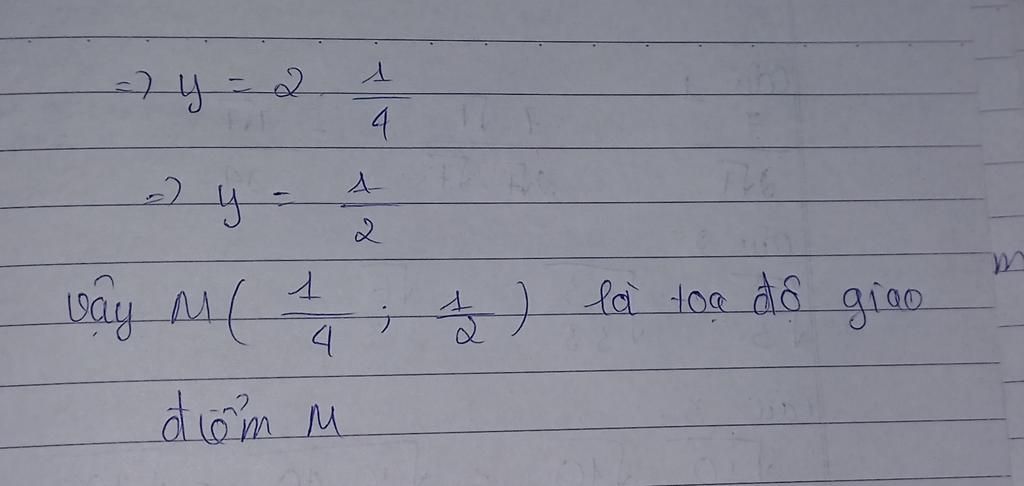 => y = 2 . 1/4
=> y = 1/2
vậy M ( 1/4 ; 1/2 ) là toạ độ giao
điểm M